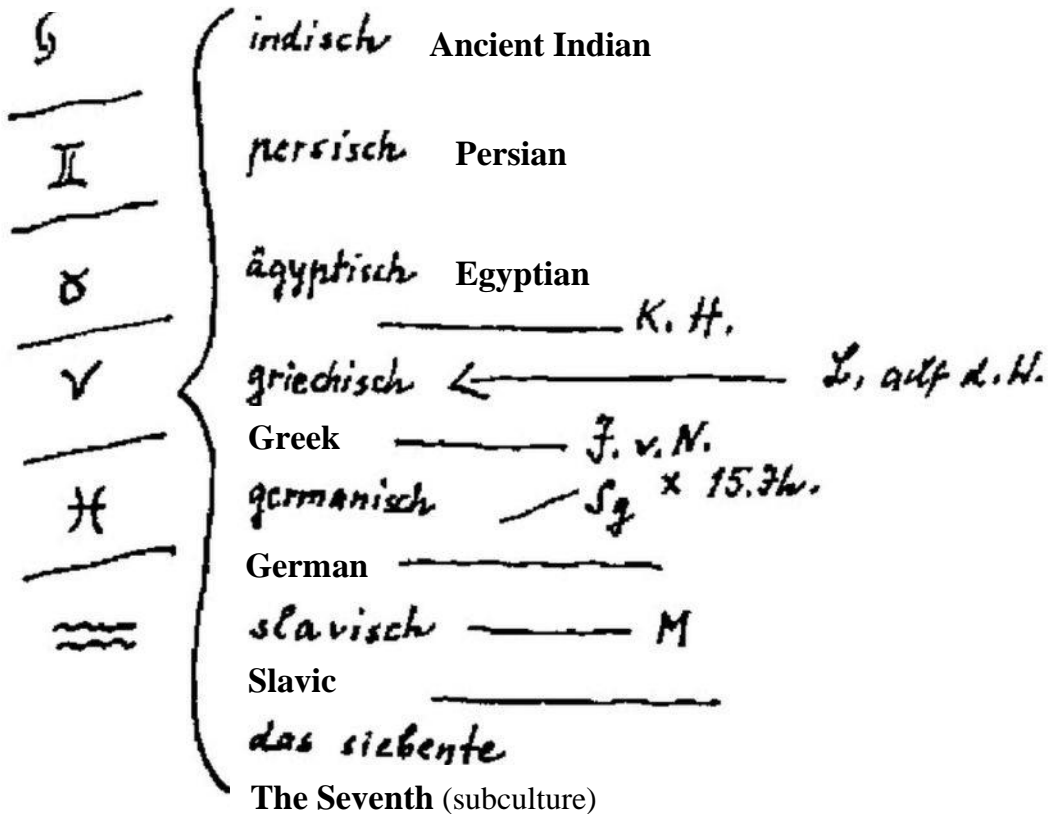 indisch Ancient Indian
♊ persisch Persian
♉ ägyptisch Egyptian
K. H.
griechisch L. auf d. W.
Greek J. v. N.
♓ germanisch Sg × 15. Jh.
German
♒ slavisch M
Slavic
das siebente
The Seventh (subculture)